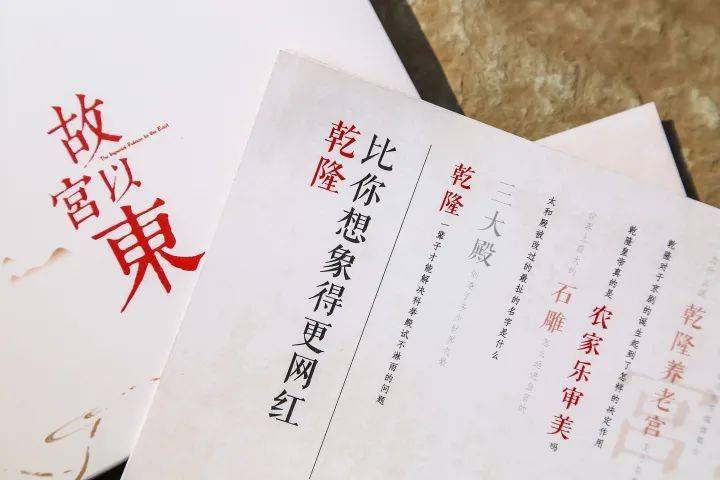 故宮以東
The Imperial Palace to the East
乾隆
比你想象得更网红
乾隆一辈子才能解决科举殿试不淋雨的问题
三大殿
太和殿被改过的最扯的名字是什么
石雕怎么运进皇宫的
乾隆皇帝真的是农家乐审美吗
乾隆对于京剧的诞生起到了怎样的决定作用
乾隆养老宫
宫